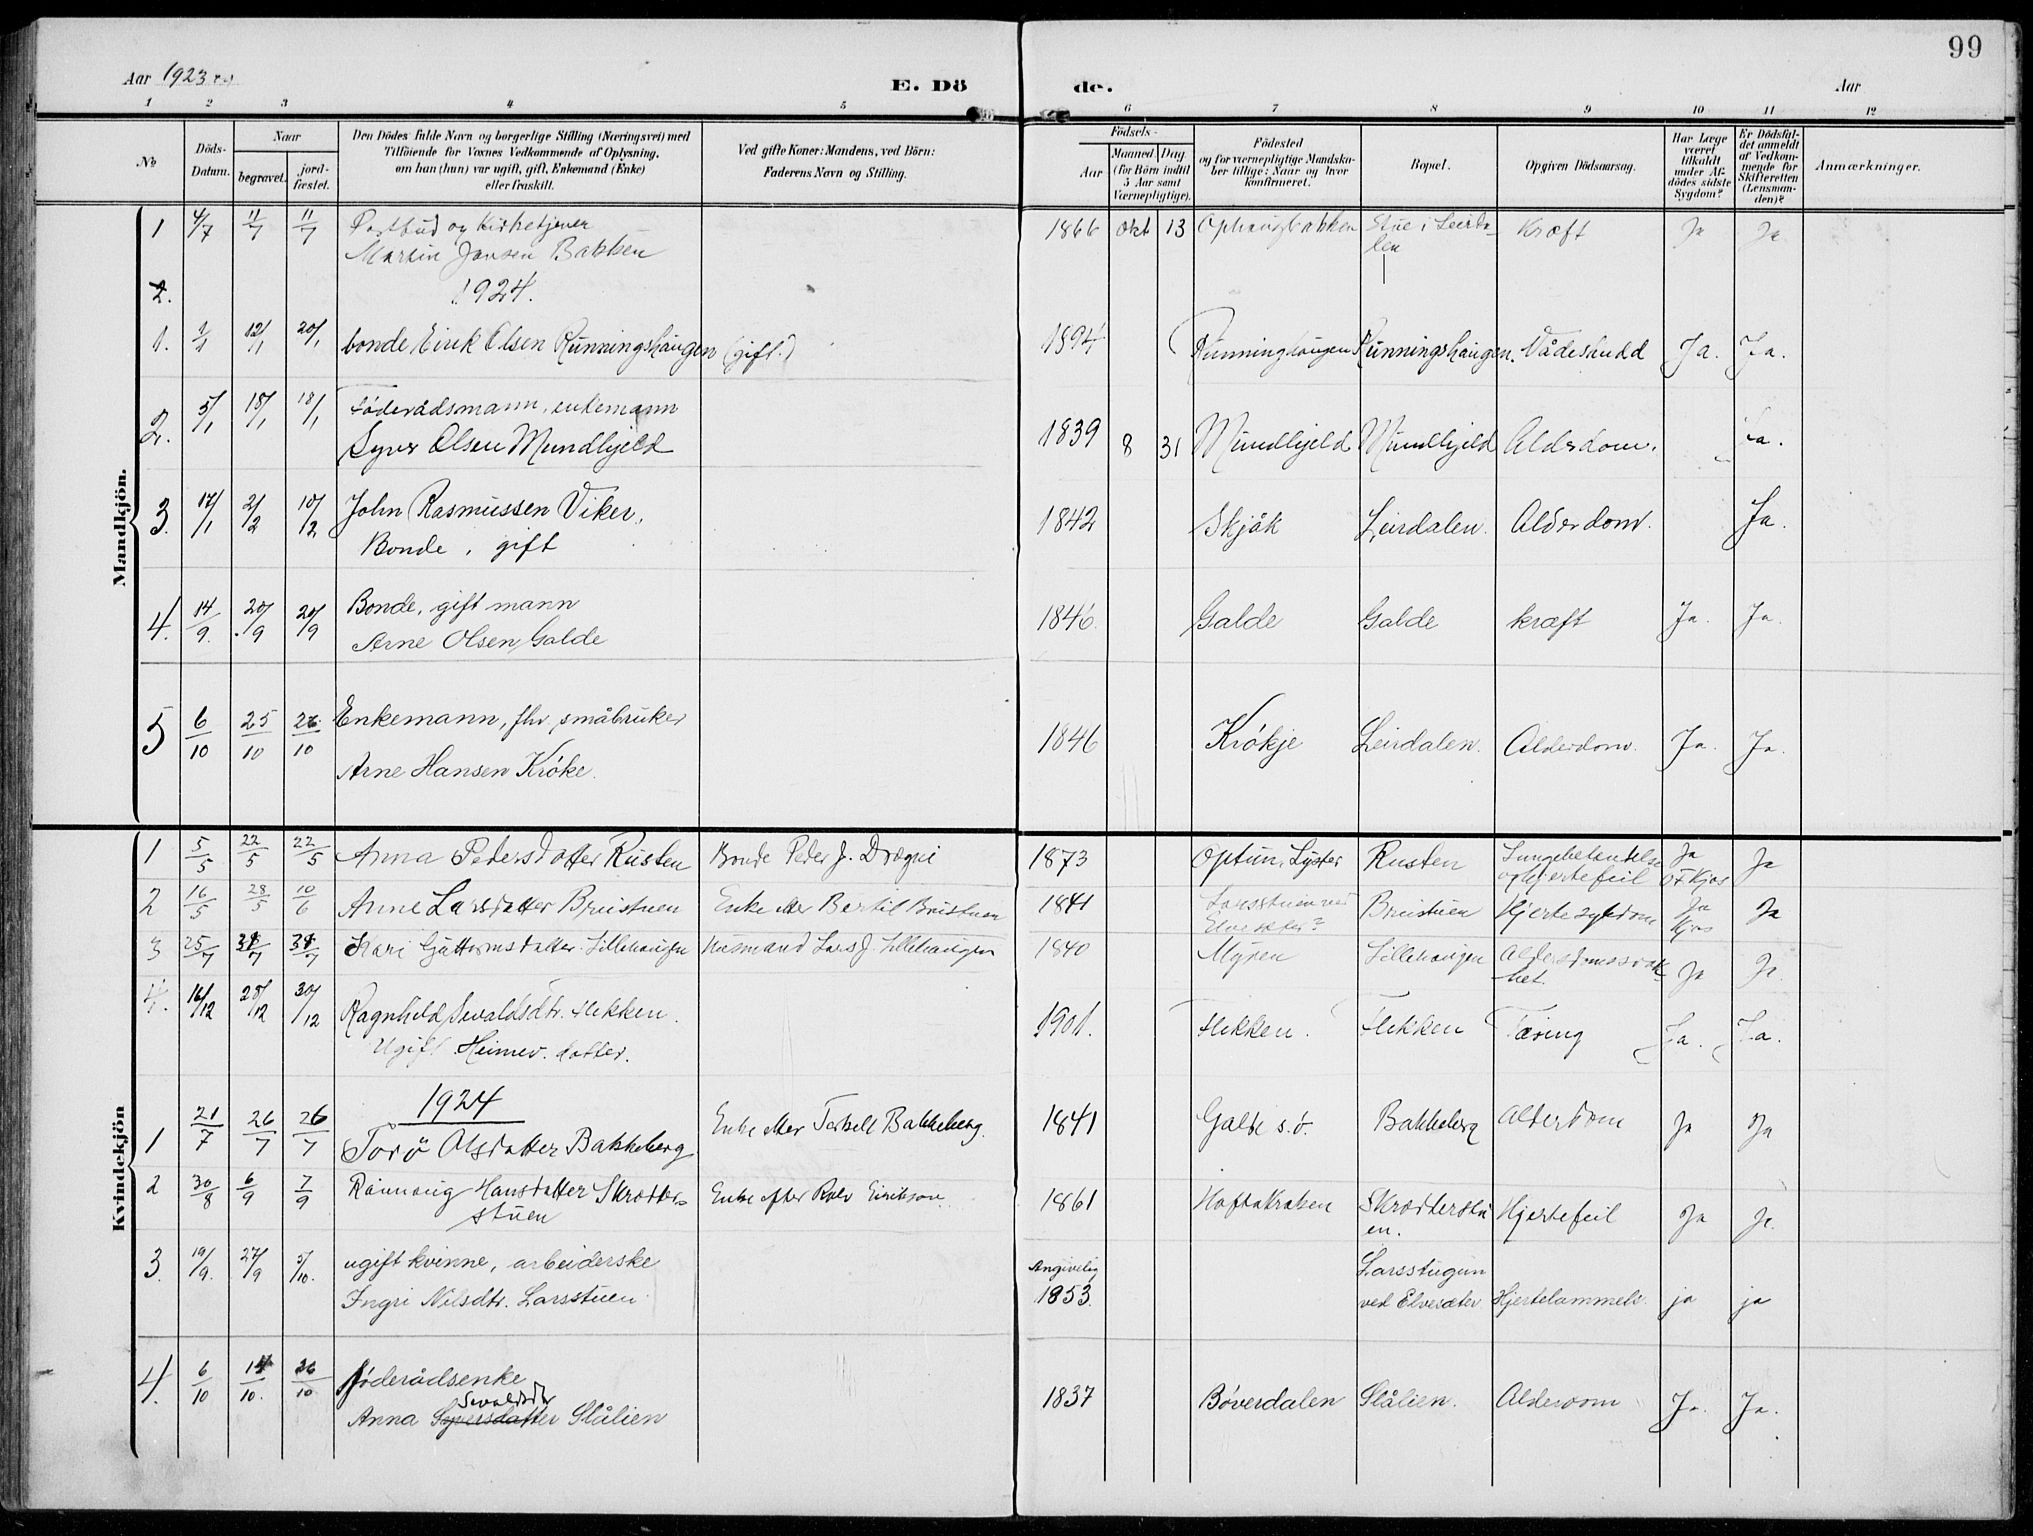 99
Aar 1923
E. Dö
de.
Aar
1 2 3 4 5 6 7 8 9 10 11 12
No
Döds-
Datum.
Naar
begravet.
jord-
fæstet.
Den Dödes fulde Navn og borgerlige Stilling (Næringsvei) med
Tilföiende for Voxnes Vedkommende af Oplysning,
om han (hun) var ugift, gift, Enkemand (Enke)
eller fraskilt.
Ved gifte Koner: Mandens, ved Börn:
Faderens Navn og Stilling.
Födsels-
Aar
Maaned Dag
(for Börn indtil
5 Aar samt
Værnepligtige).
Födested
og for værnepligtige Mandska-
ber tillige: Naar og hvor
konfirmeret.
Bopæl.
Opgiven Dödsaarsag.
Har Læge
været
tilkaldt
under Af-
dödes sidste
Sygdom?
Er Dödsfal-
det anmeldt
af Vedkom-
mende for
Skifteretten
(Lensman-
den)?
Anmærkninger.
Mandkjön.
1 4/7 11/7 11/7 Postbud og Kirketjener 1866 Okt 13 Stue i Leirda- Kræft Ja Ja
Martin Jonsen Bakken len
2. 1924.
1. 1/1 12/1 20/1 bonde Eirik Olsen Runningshaugen (gift.) 1894 Runninghaugen Runningshaugen. Vådeskudd Ja. Ja.
2. 5/1 18/1 18/1 Föderådsmann, enkemann
Syver Olsen Mundhjeld 1839 8 31 Mundhjeld Mundhjeld Alderdom. Ja.
3. 17/1 2/2 10/2 John Rasmussen Viker, 1842 Skjåk Leirdalen. Alderdom. Ja.
Bonde, gift
4. 14/9. 20/9 20/9 Bonde, gift mann 1846. Galde Galde kræft Ja. Ja.
Arne Olsen Galde
5 6/10 25/10 26/10 Enkemann, fhv. småbruker
Arne Hansen Kröke. 1846 Krökje Leirdalen. Alderdom. Ja. Ja.
Kvindekjön
1 5/5 22/5 22/5 Anna Pedersdatter Rusten Bonde Peder J. Drægni 1873 Optun, Lyster Rusten Lungebetendelse Ja Ja
og hjertefeil Kjos
2 16/5 28/5 10/6 Anne Larsdatter Brustuen Enke etter Bertil Brustuen 1841 Larsstuen ved Brustuen Hjertesykdom Ja Ja
Elvesæter? Kjos
3 25/7 31/7 31/7 Kari Guttormsdatter Lillehaugen Husmand Lars J. Lillehaugen 1840 Myren Lillehaugen Alderdomssvak-
het. Ja Ja
4. 16/12 28/12 30/12 Ragnhild Sevaldsdtr. Flekken. 1901. Flekken. Flekken Tæring Ja. Ja.
Ugift Heimev. datter.
1924
1 21/7 26/7 26/7 Torö Olsdatter Bakkeberg Enke etter Torkell Bakkeberg. 1841 Galde s.ö. Bakkeberg Alderdom Ja Ja
2 30/8 6/9 7/9 Rannaug Hansdatter Skrædder- Enke efter Rolv Eirikson 1861 Hoftakraken Skrædderstu Hjertefeil Ja Ja
stuen en.
3. 19/9. 27/9 5/10. ugift kvinne, arbeiderske Angivelig Larsstugun
Ingri Nilsdtr. Larsstuen. 1853. ved Elvesæter Hjertelammels. ja ja
4. 6/10 14/10. 26/10 föderådsenke
Sevaldsdtr
Anna Syversdatter Slålien 1837 Böverdalen Slålien. Alderdom Ja. Ja.